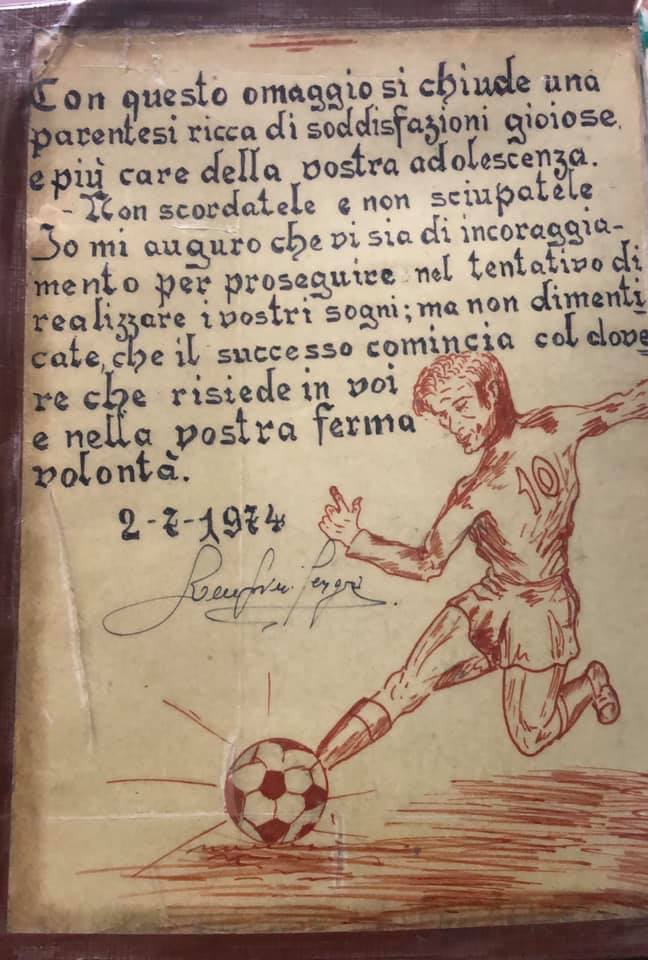 Con questo omaggio si chiude una
parentesi ricca di soddisfazioni gioiose,
e più care della vostra adolescenza.
- Non scordatele e non sciupatele
Io mi auguro che vi sia di incoraggia-
mento per proseguire nel tentativo di
realizzare i vostri sogni; ma non dimenti
cate, che il successo comincia col dove
re che risiede in voi
e nella vostra ferma
volontà.
2-7-1974
10